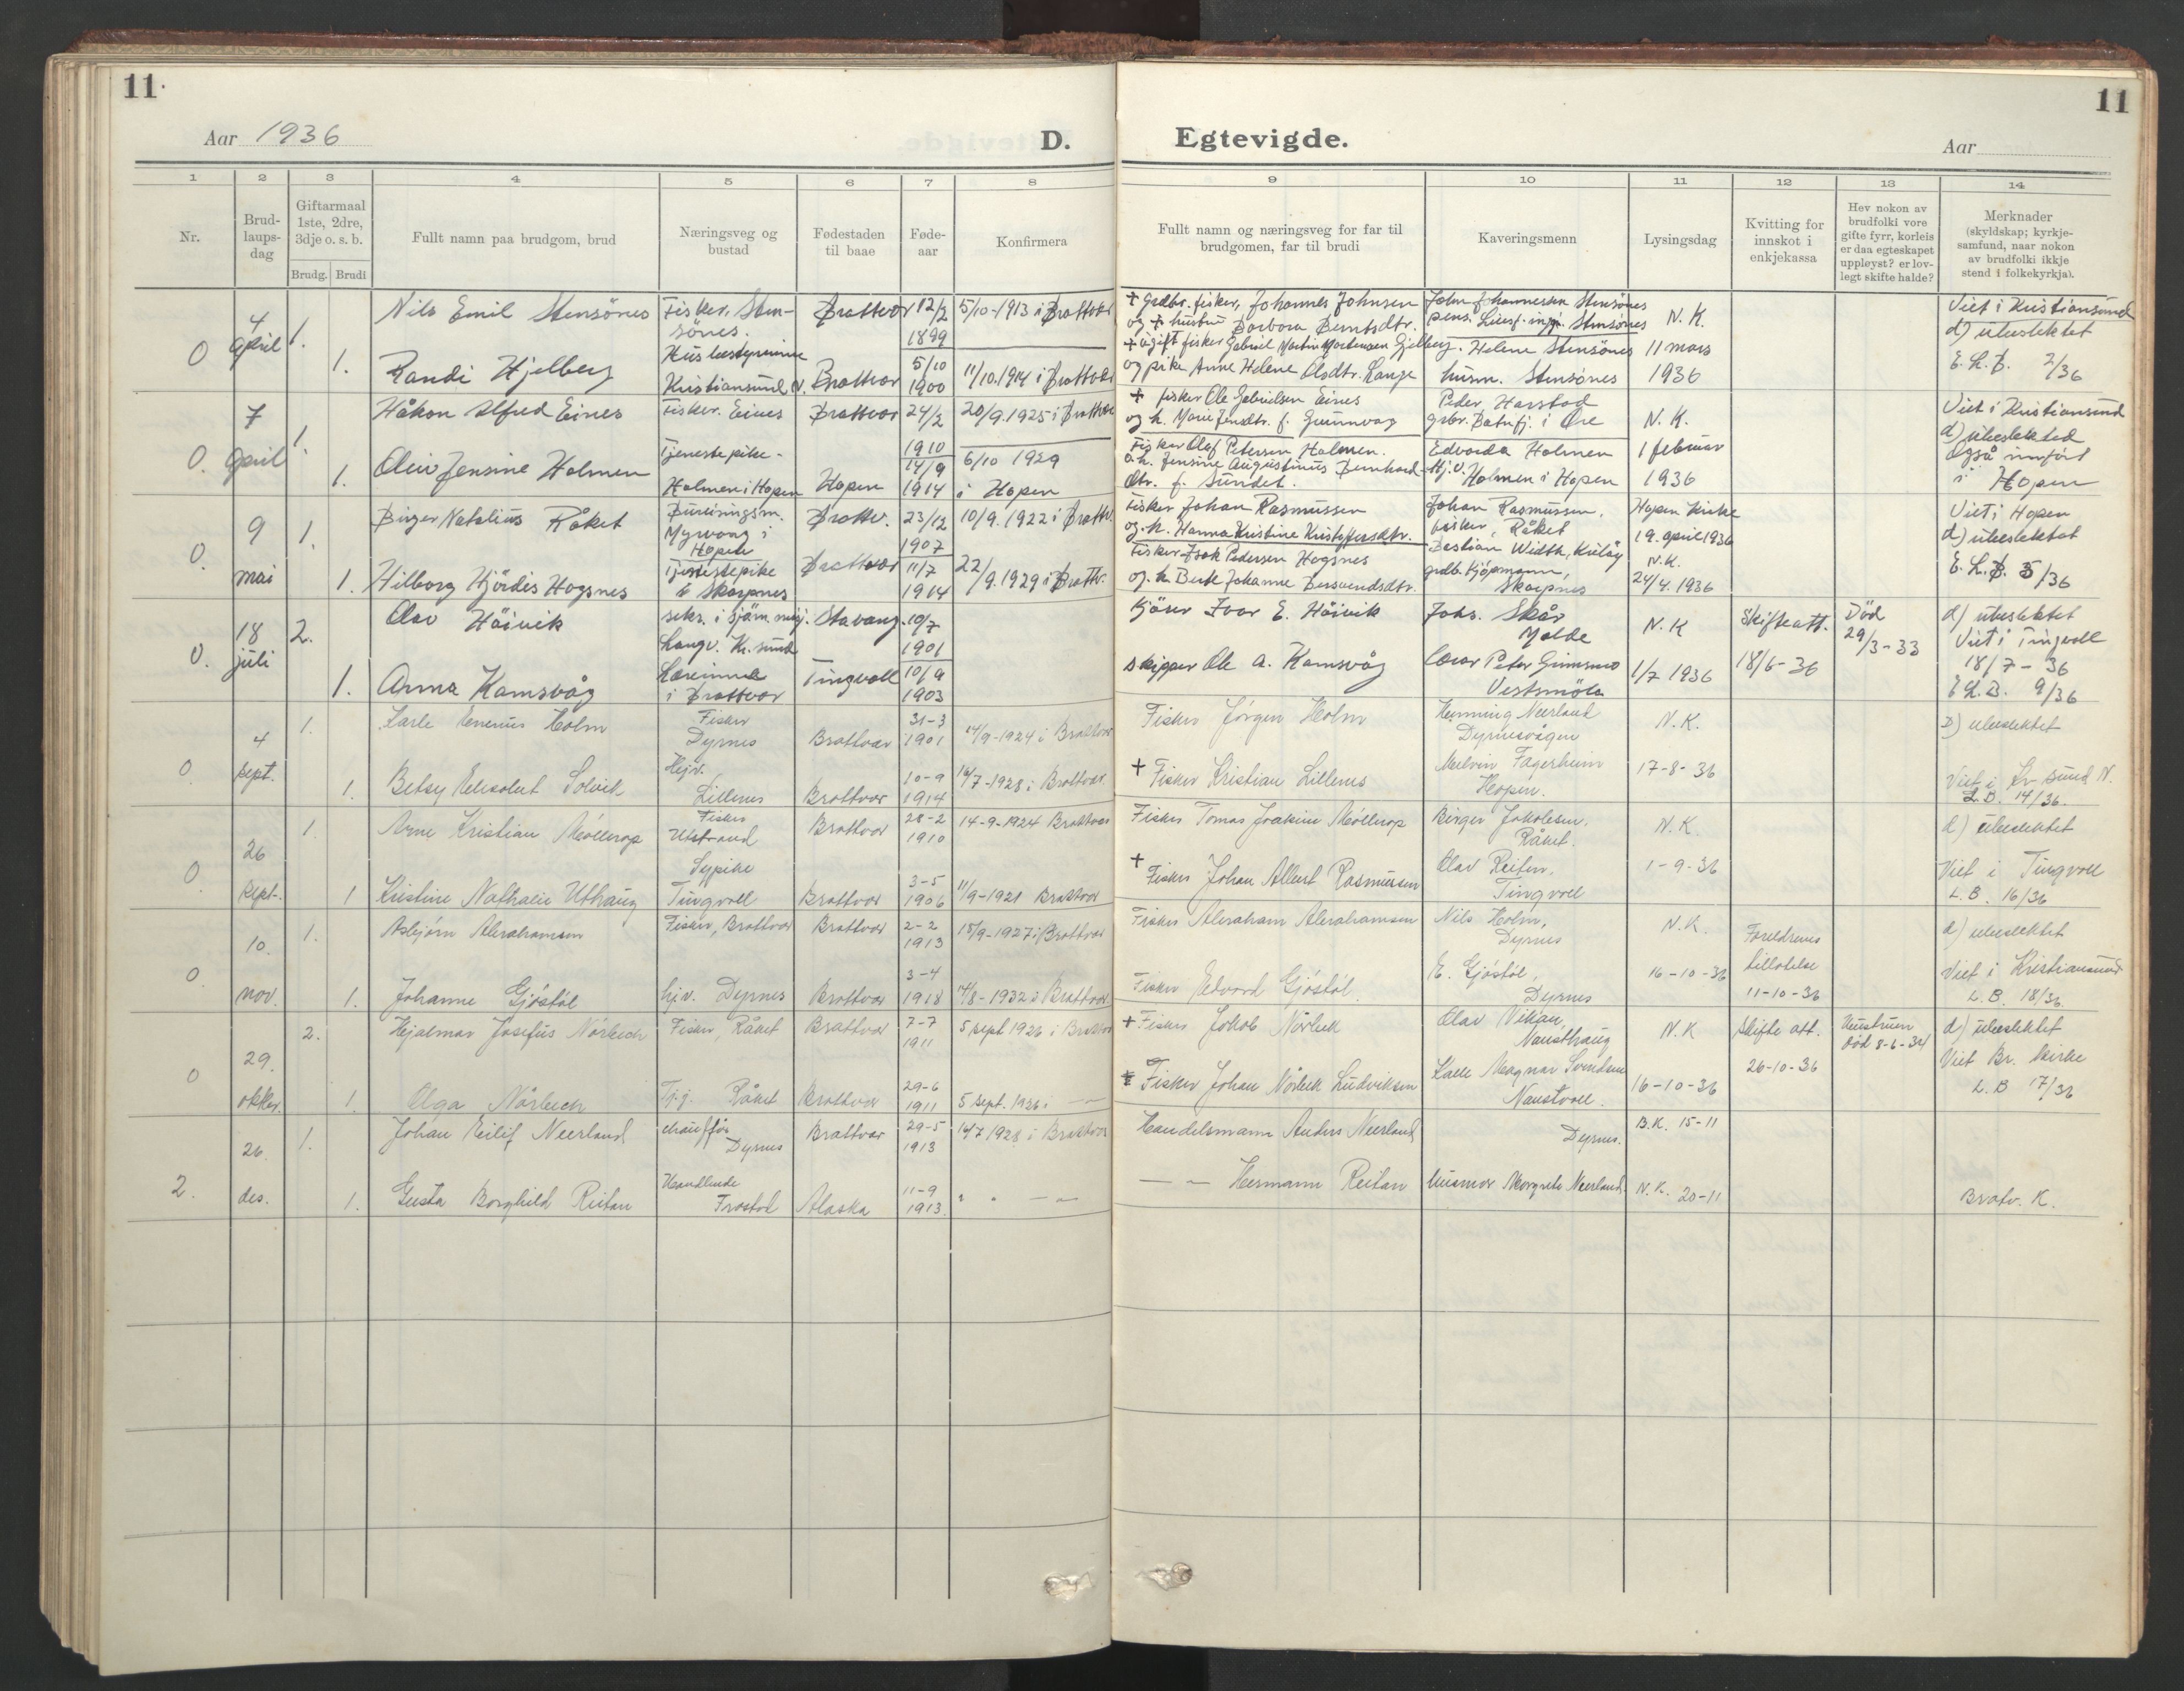 11.
11
Aar 1936
D.
Egtevigde.
Aar
1 2 3 4 5 6 7 8 9 10 11 12 13 14
Nr.
Brud-
laups-
dag
Giftarmaal
1ste, 2dre,
3dje o. s. b.
Brudg. Brudi
Fullt namn paa brudgom, brud
Næringsveg og
bustad
Fødestaden
til baae
Føde-
aar
Konfirmera
Fullt namn og næringsveg for far til
brudgomen, far til brudi
Kaveringsmenn
Lysingsdag
Kvitting for
innskot i
enkjekassa
Hev nokon av
brudfolki vore
gifte fyrr, korleis
er daa egteskapet
uppløyst? er lov-
legt skifte halde?
Merknader
(skyldskap; kyrkje-
samfund, naar nokon
av brudfolki ikkje
stend i folkekyrkja).
0
4
april
1.
Nils Emil Stensönes
Fisker, Sten-
sönes.
Brattvær
12/2
1899
5/10-1913 i Brattvær
+ grdbr. fisker, Johannes Johnsen
og + hustru Barbara Berntsdtr.
John Johannessen Stensönes
Stensönes
N. K.
Viet i Kristiansund
d) ubeslektet
1.
Randi Hjelberg
Husbestyrerinne
Kristiansund N.
Brattvær
5/10
1900
11/10.1914 i Brattvær
+ ugift fisker Gabriel Martin Mortensen Gjelberg.
og pike Anne Helene Olsdtr. Lange
Helene Stensönes
husm. Stensönes
11 mars
1936
E. L. B. 2/36
0.
7
april
1.
Håkon Alfred Eines
Fisker. Eines
Brattvær
24/2
1910
20/9.1925 i Brattvær
+ fisker Ole Gabrielsen Eines
og h. Marie Jensdtr. f. Gunnvag
Peder Harstad
grbr. Batnfj. i Öre
N. K.
Viet i Kristiansund
d) ubeslekted
1.
Oleiv Jensine Holmen
Tjenestepike-
Holmen i Hopen
Hopen
14/9
1914
6/10 1929
i Hopen
Fisker Olaf Petersen Holmen.
o. h. Jensine Augustinus Bernhard-
dtr. f. Sundet.
Edvarda Holmen
Hj.v. Holmen i Hopen
1 februar
1936
Også innfört
i Hopen
0.
9
mai
1.
Birger Natalius Råket
Bureisingsm.
Myrvang i
Hopen
Brattv.
23/12
1907
10/9. 1922 i Brattv.
Fisker Johan Rasmussen
og h. Hanna Kristine Kristoffersdtr.
Johan Rasmussen,
fisker, Råket
Hopen kirke
19. april 1936
Viet i Hopen
d) ubeslektet
1.
Hilborg Hjördis Hogsnes
Tjenestepike
Skarpnes
Brattvær
11/7
1914
22/9.1929 i Brattv.
Fisker Isak Pedersen Hogsnes
og h. Berte Johanne Bersvendsdtr.
Bastian Width,
grdb. Kjöpmann,
Skarpnes
N.K.
24/4. 1936
E. L. B. 5/36
0.
18
juli
2.
Olav Höivik
sekr. i sjöm. misj.
Langv. Kr.sund
Stavang.
10/7
1901
Kjörer Ivar E. Höivik
Johs. Skår
Molde
N. K
Skifteatt.
18/6-36
Död
29/3-33
d) ubeslektet
Viet i Tingvoll
18/7 - 36
1.
Anna Kamsvåg
Lærerinne
i Brattvær
Tingvoll
10/9
1903
skipper Ole A. Kamsvåg
lærer Peter Grimsmo
Vestsmöla
1/7 1936
E.L.B. 9/36
0.
4
sept.
1.
Karle Enevius Holm
Fisker
Dyrnes
Brattvær
31-3
1901
14/9-1924 i Brattvær
Fisker Jørgen Holm
Henning Neerland
Dyrnesvågen
N.K.
D) ubeslektet
1.
Betsy Elisabet Solvik
Hjv.
Lillenes
Brattvær
10-9
1914
16/7-1928 i Brattvær.
+ Fisker Kristian Lillenes
Melvin Fagerheim
Hopen.
17-8-36
Viet i Kr sund N.
L.B. 14/36.
0.
26
sept.
1.
Arne Kristian Møllerop
Fisker
Utstrand
Brattvær
28-2
1910
14-9-1924 Brattvær
Fisker Tomas Joakim Møllerop
Birger Jakobsen,
Råket.
N.K.
d) ubeslektet
1
Kristine Nathalie Uthaug
Sypike
Tingvoll
Brattvær
3-5
1906
11/9-1921 Brattvær
+ Fisker Johan Albert Rasmussen
Olav Reiten,
Tingvoll
1-9-36
Viet i Tingvoll
L.B. 16/36
0
10.
nov.
1.
Asbjørn Abrahamsen
Fisker, Brattvær
Brattvær
2-2
1913
18/9-1927 i Brattvær
Fisker Abraham Abrahamsen
Nils Holm,
Dyrnes
N.K.
Foreldrenes
tillatelse
11-10-36
d) ubeslektet
1.
Johanne Gjøstøl
hj.v. Dyrnes
Brattvær
3-4
1918
14/8-1932 i Brattvær.
Fisker Edvard Gjøstøl.
E. Gjøstøl,
Dyrnes
16-10-36
Viet i Kristiansund
L.B. 18/36
0
29.
oktbr.
2.
Hjalmar Josefus Nørbech
Fisker, Råket
Brattvær
7-7
1911
5 sept 1926 i Brattvær
+ Fisker Jakob Nørbek
Olav Vikan,
Nausthaug
N.K
Skifte att.
26-10-36
Hustruen
død 8-6-34
d) ubeslektet
1.
Olga Nørbech
Tj.j. Råket
Brattvær
29-6
1911
5 sept. 1926 i — " —
Fisker Johan Nørbek Ludviksen
Kalle Magnar Svendsen
Naustvoll.
16-10-36
Viet Br. kirke
L.B 17/36
2.
26.
des.
1.
Johan Eilif Neerland
chauffør
Dyrnes
Brattvær
29-5
1913
14/7 1928 i Brattvær
Handelsmann Anders Neerland
Dyrnes.
B.K. 15-11
1.
Gusta Borghild Reitan
Handlende
Frostad
Alaska
11-9
1913.
" " — " —
— " — Hermann Reitan
husmor Margrete Neerland.
N.K. 20-11
Bratv. K.